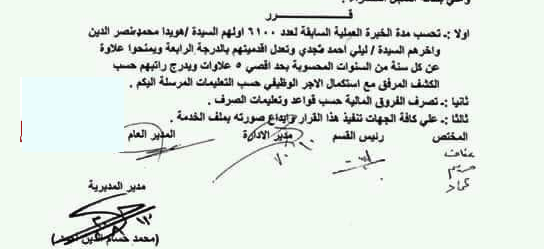 قـــــرر
اولا :ـ تحسب مدة الخبرة العملية السابقة لعدد ٦١٠٠ اولهم السيدة / هويدا محمد نصر الدين
واخرهم السيدة / ليلي احمد مجدي وتعدل اقدميتهم بالدرجة الرابعة ويمنحوا علاوة
عن كل سنة من السنوات المحسوبة بحد اقصي ٥ علاوات ويدرج راتبهم حسب
الكشف المرفق مع استكمال الاجر الوظيفي حسب التعليمات المرسلة اليكم .
ثانيا :ـ تصرف الفروق المالية حسب قواعد وتعليمات الصرف .
ثالثا :ـ علي كافة الجهات تنفيذ هذا القرار وإيداع صورته بملف الخدمة .
المختص رئيس القسم مدير الادارة المدير العام
عفاف
مريم
عماد
مدير المديرية
(محمد حسام الدين